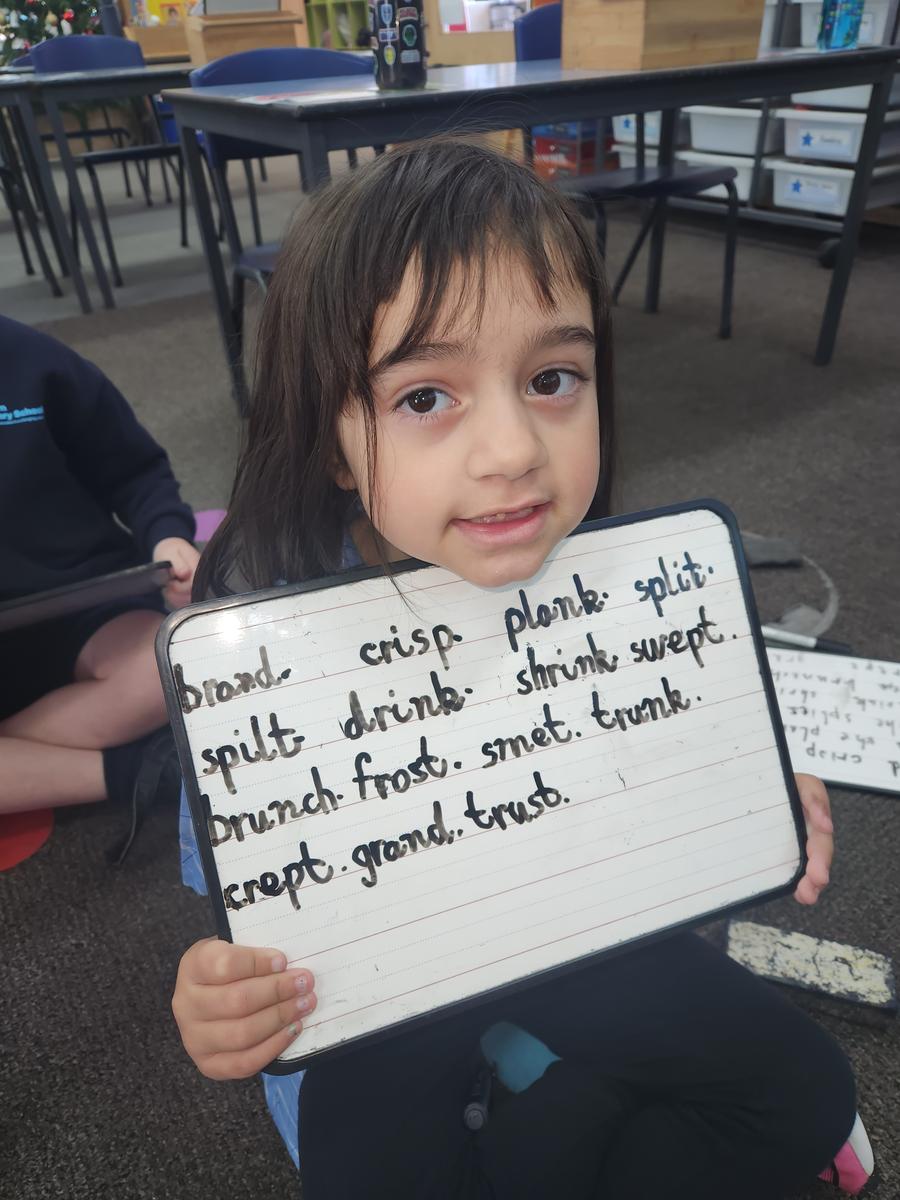 brand. crisp. plank. split.
spilt. drink. shrink swept.
brunch. frost. smet. trunk.
crept. grand.. trust.